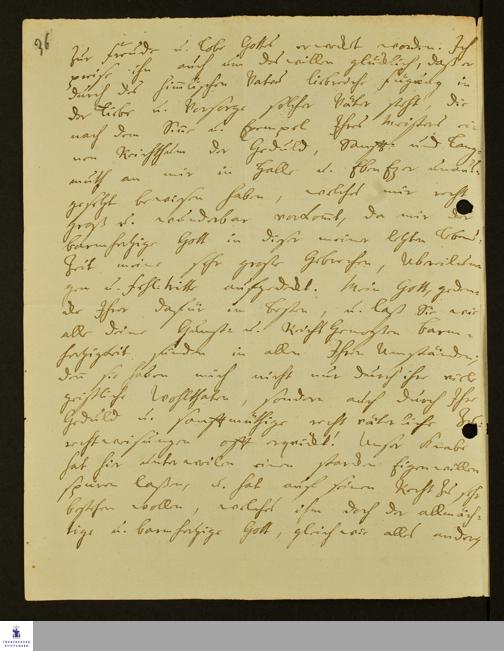 36
zur Freude u. Lobe Gottes erwecket worden. Ich
preise ihn auch um deswillen glücklich, daß er
durch des himlischen Vaters liebreiche Fügung in
der Liebe u. Vorsorge solcher Väter steht, die
nach dem Sinn u. Exempel Ihres Meisters ei-
nen Reichthum der Geduld, Sanfft- und Lang-
muth an mir in Halle u. Ebenezer unaus-
gesetzt bewiesen haben, welches mir recht
groß u. wunderbar vorkomt, da mir der
barmhertzige Gott in dieser meiner letzten Lebens-
Zeit meine sehr große Gebrechen, Übereilun-
gen u. Fehltritte aufgedeckt. Mein Gott, geden-
cke Ihrer dafür im besten, u. laß Sie wie
alle deine Gerechte u. Barm-
hertzigkeit finden in allen Ihren Umständen,
den sie haben mich nicht nur durch ihre viele
geistliche Wohlthaten, sondern auch durch Ihre
Geduld u. sanfftmüthige recht väterliche Zu-
rechtweisungen offt erquickt! Unser Knabe
hat hier unterweilen einen starcken Eigenwillen
spüren laßen, u. hat auf seinen Kopf zu sehr
bestehen wollen, welches ihm doch der allmäch-
tige u. barmhertzige Gott, gleichwie alles andere
FRANCKESCHE
STIFTUNGEN